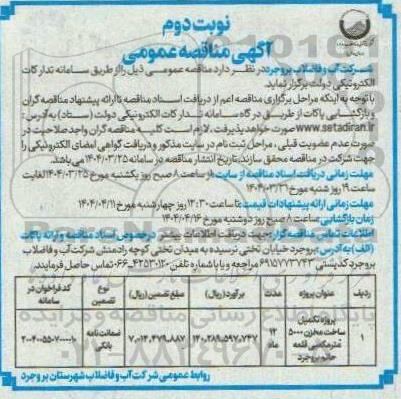 نوبت دوم
آگهی مناقصه عمومی
شرکت آب و فاضلاب بروجرد در نظر دارد مناقصه عمومی ذیل را از طریق سامانه تدارکات
الکترونیکی دولت برگزار نماید.
با توجه به اینکه مراحل برگزاری مناقصه اعم از دریافت اسناد مناقصه تا ارائه پیشنهاد مناقصه گران
و بازگشایی پاکات از طریق درگاه سامانه تدارکات الکترونیکی دولت (ستاد) به آدرس:
www.setadiran.ir صورت خواهد پذیرفت، لازم است کلیه مناقصه گران واجد صلاحیت در
صورت عدم عضویت قبلی، مراحل ثبت نام در سایت مذکور و دریافت گواهی امضای الکترونیکی را
جهت شرکت در مناقصه محقق سازند. تاریخ انتشار مناقصه در سامانه ۱۴۰۴/۰۳/۲۵ می باشد.
مهلت زمانی دریافت اسناد مناقصه از سایت: از ساعت ۸ صبح روز یکشنبه مورخ ۱۴۰۴/۰۳/۲۵ لغایت
ساعت ۱۹ روز شنبه مورخ ۱۴۰۴/۰۳/۳۱
مهلت زمانی ارائه پیشنهادات قیمت: تا ساعت ۱۳:۳۰ روز چهارشنبه مورخ ۱۴۰۴/۰۴/۱۱
زمان بازگشایی: ساعت ۸ صبح روز دوشنبه مورخ ۱۴۰۴/۰۴/۱۶
اطلاعات تماس مناقصه گزار: جهت دریافت اطلاعات بیشتر درخصوص اسناد مناقصه و ارائه پاکات
(الف) به آدرس: بروجرد خیابان تختی نرسیده به میدان تختی کوچه رادمنش شرکت آب و فاضلاب
بروجرد کدپستی ۶۹۱۵۷۷۳۷۴۳ مراجعه و یا با شماره تلفن ۰۶۶-۴۲۵۳۰۱۲۰ تماس حاصل فرمایند.
ردیف عنوان پروژه مدت برآورد (ریال) مبلغ تضمین (ریال) نوع تضمین کد فراخوان در سامانه
۱ پروژه تکمیل ساخت مخزن ۵۰۰۰ مترمکعبی قلعه حاتم بروجرد ۱۲ ماه ۱۴۰،۲۸۹،۵۹۷،۷۴۷ ۷،۰۱۴،۴۷۹،۸۸۷ ضمانت نامه بانکی ۲۰۰۴۰۰۵۵۰۷۰۰۰۰۱۰
روابط عمومی شرکت آب و فاضلاب شهرستان بروجرد